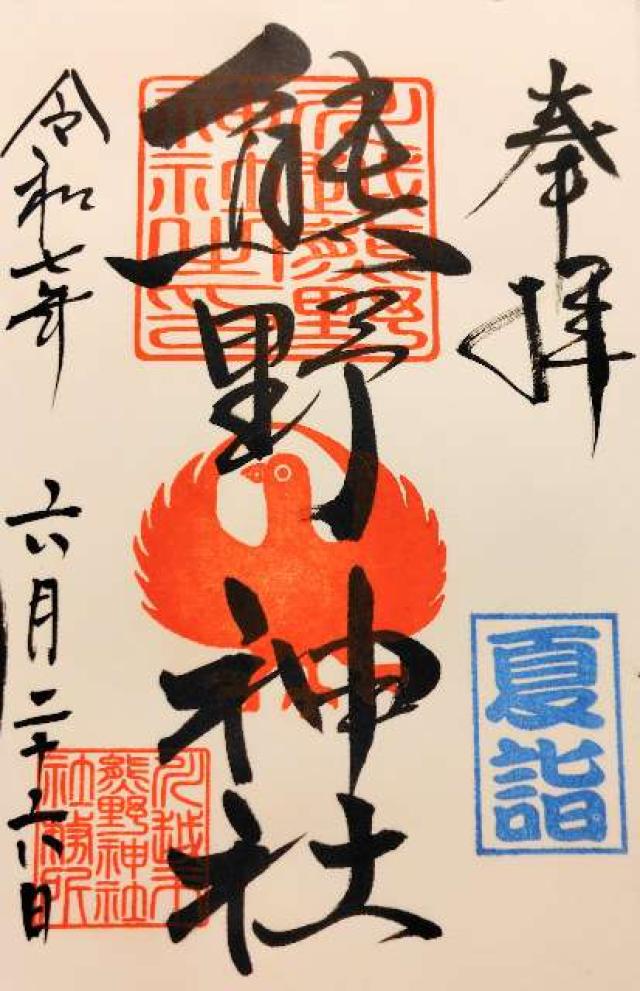 奉拝
夏詣
熊野神社
川越熊野
神社之印
令和七年
六月二十六日
川越市
熊野神社
社務所